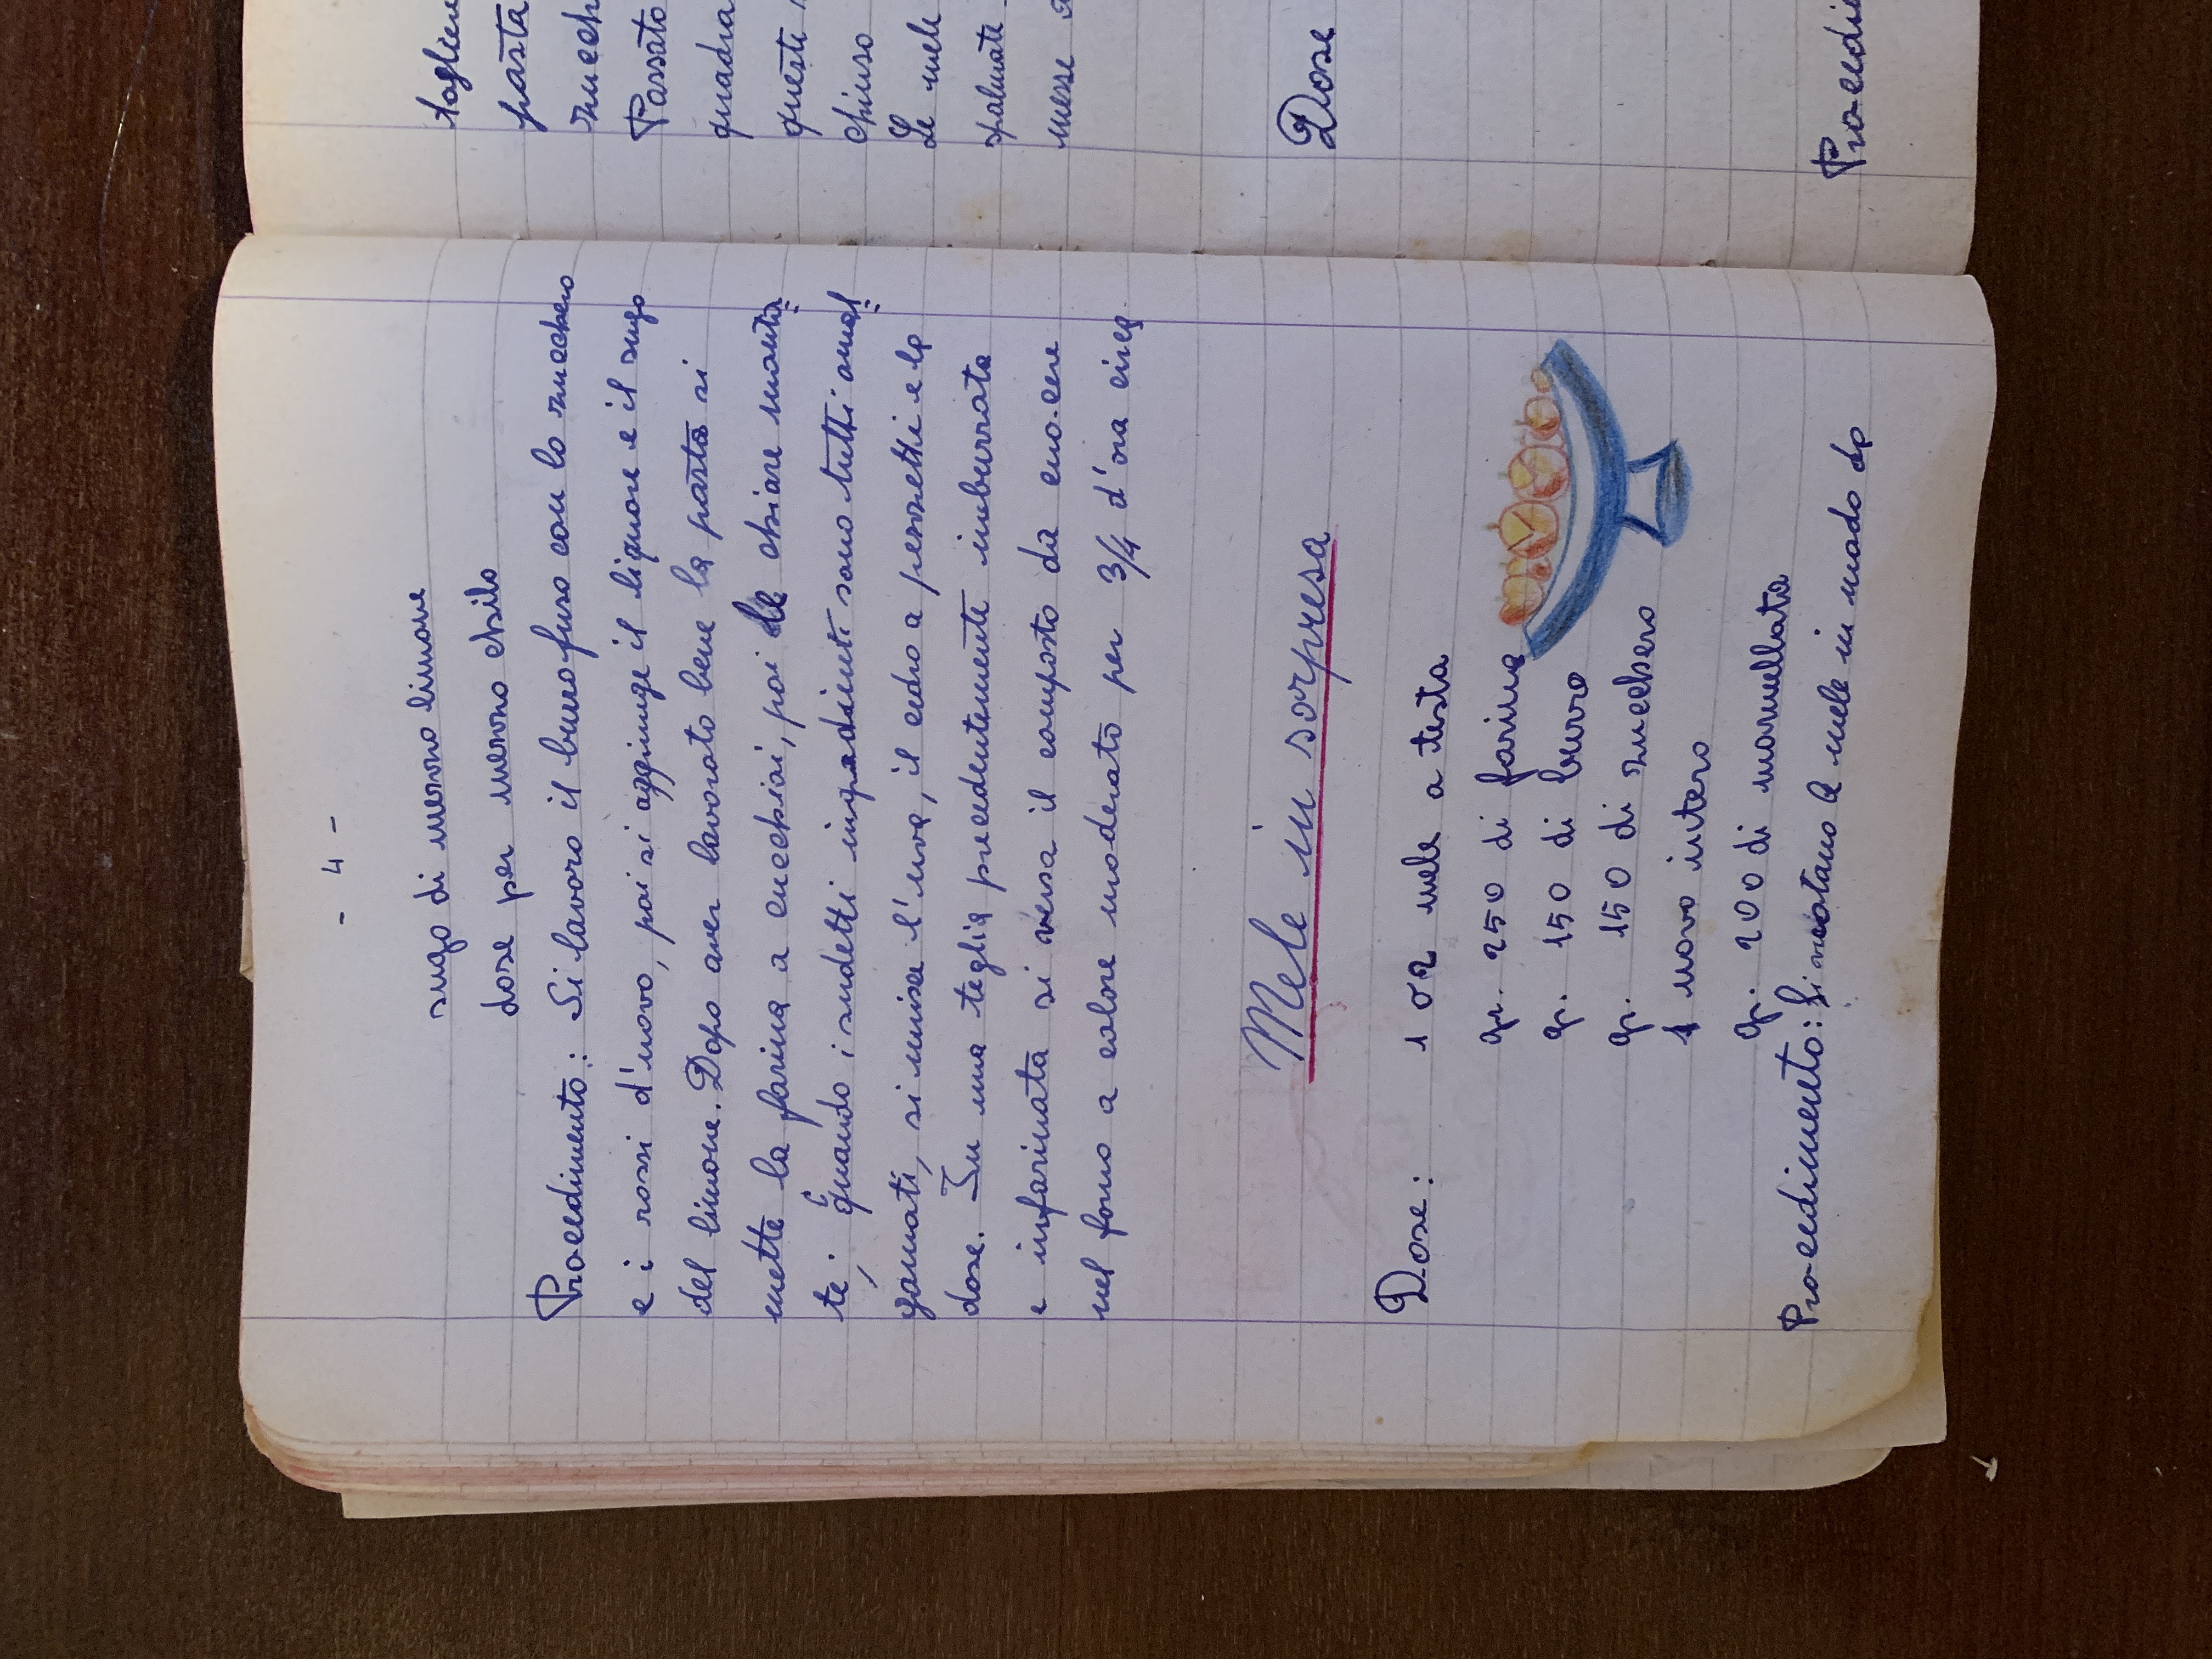 - 4 -
sugo di mezzo limone
dose per mezzo chilo
Procedimento: Si lavora il burro fuso con lo zucchero
e i rossi d'uovo, poi si aggiunge il liquore e il sugo
del limone. Dopo aver lavorato bene la pasta si
mette la farina a cucchiai, poi le chiare monta=
te; quando i sudetti ingredienti sono tutti amal=
gamati, si unisce l'uva, il cedro a pezzetti e la
dose. In una teglia precedentemente imburrata
e infarinata si versa il composto da cuo-cere
nel forno a calore moderato per 3/4 d'ora circa.
Mele in sorpresa
Dose: 1 o 2 mele a testa
gr. 250 di farina
gr. 150 di burro
gr. 150 di zucchero
1 uovo intero
gr. 200 di marmellata
Pro-cedimento: Si vuotano le mele in modo da
pasta
zucch
Passato
quadra
queste
chiuso
Le mele
spalmate
messe a
Dose
Pro-cedi